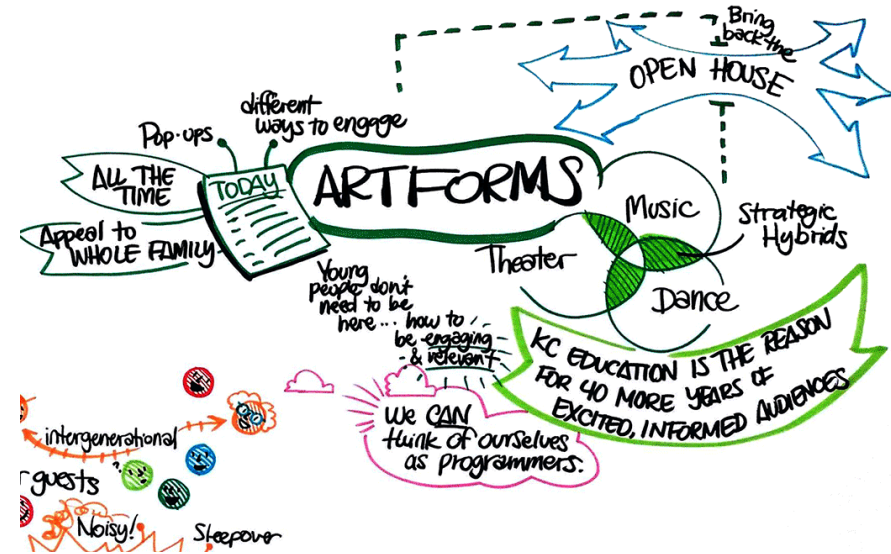 Bring
back the
OPEN HOUSE
different
ways to engage
Pop-ups
ALL THE
TIME
TODAY
ARTFORMS
Appeal to
WHOLE FAMILY
Music
Strategic
Hybrids
Theater
Dance
Young
people don't
need to be
here... how to
be engaging
& relevant
KC EDUCATION IS THE REASON
FOR 40 MORE YEARS OF
EXCITED, INFORMED AUDIENCES
We CAN
think of ourselves
as programmers.
intergenerational
guests
Noisy!
Sleepover